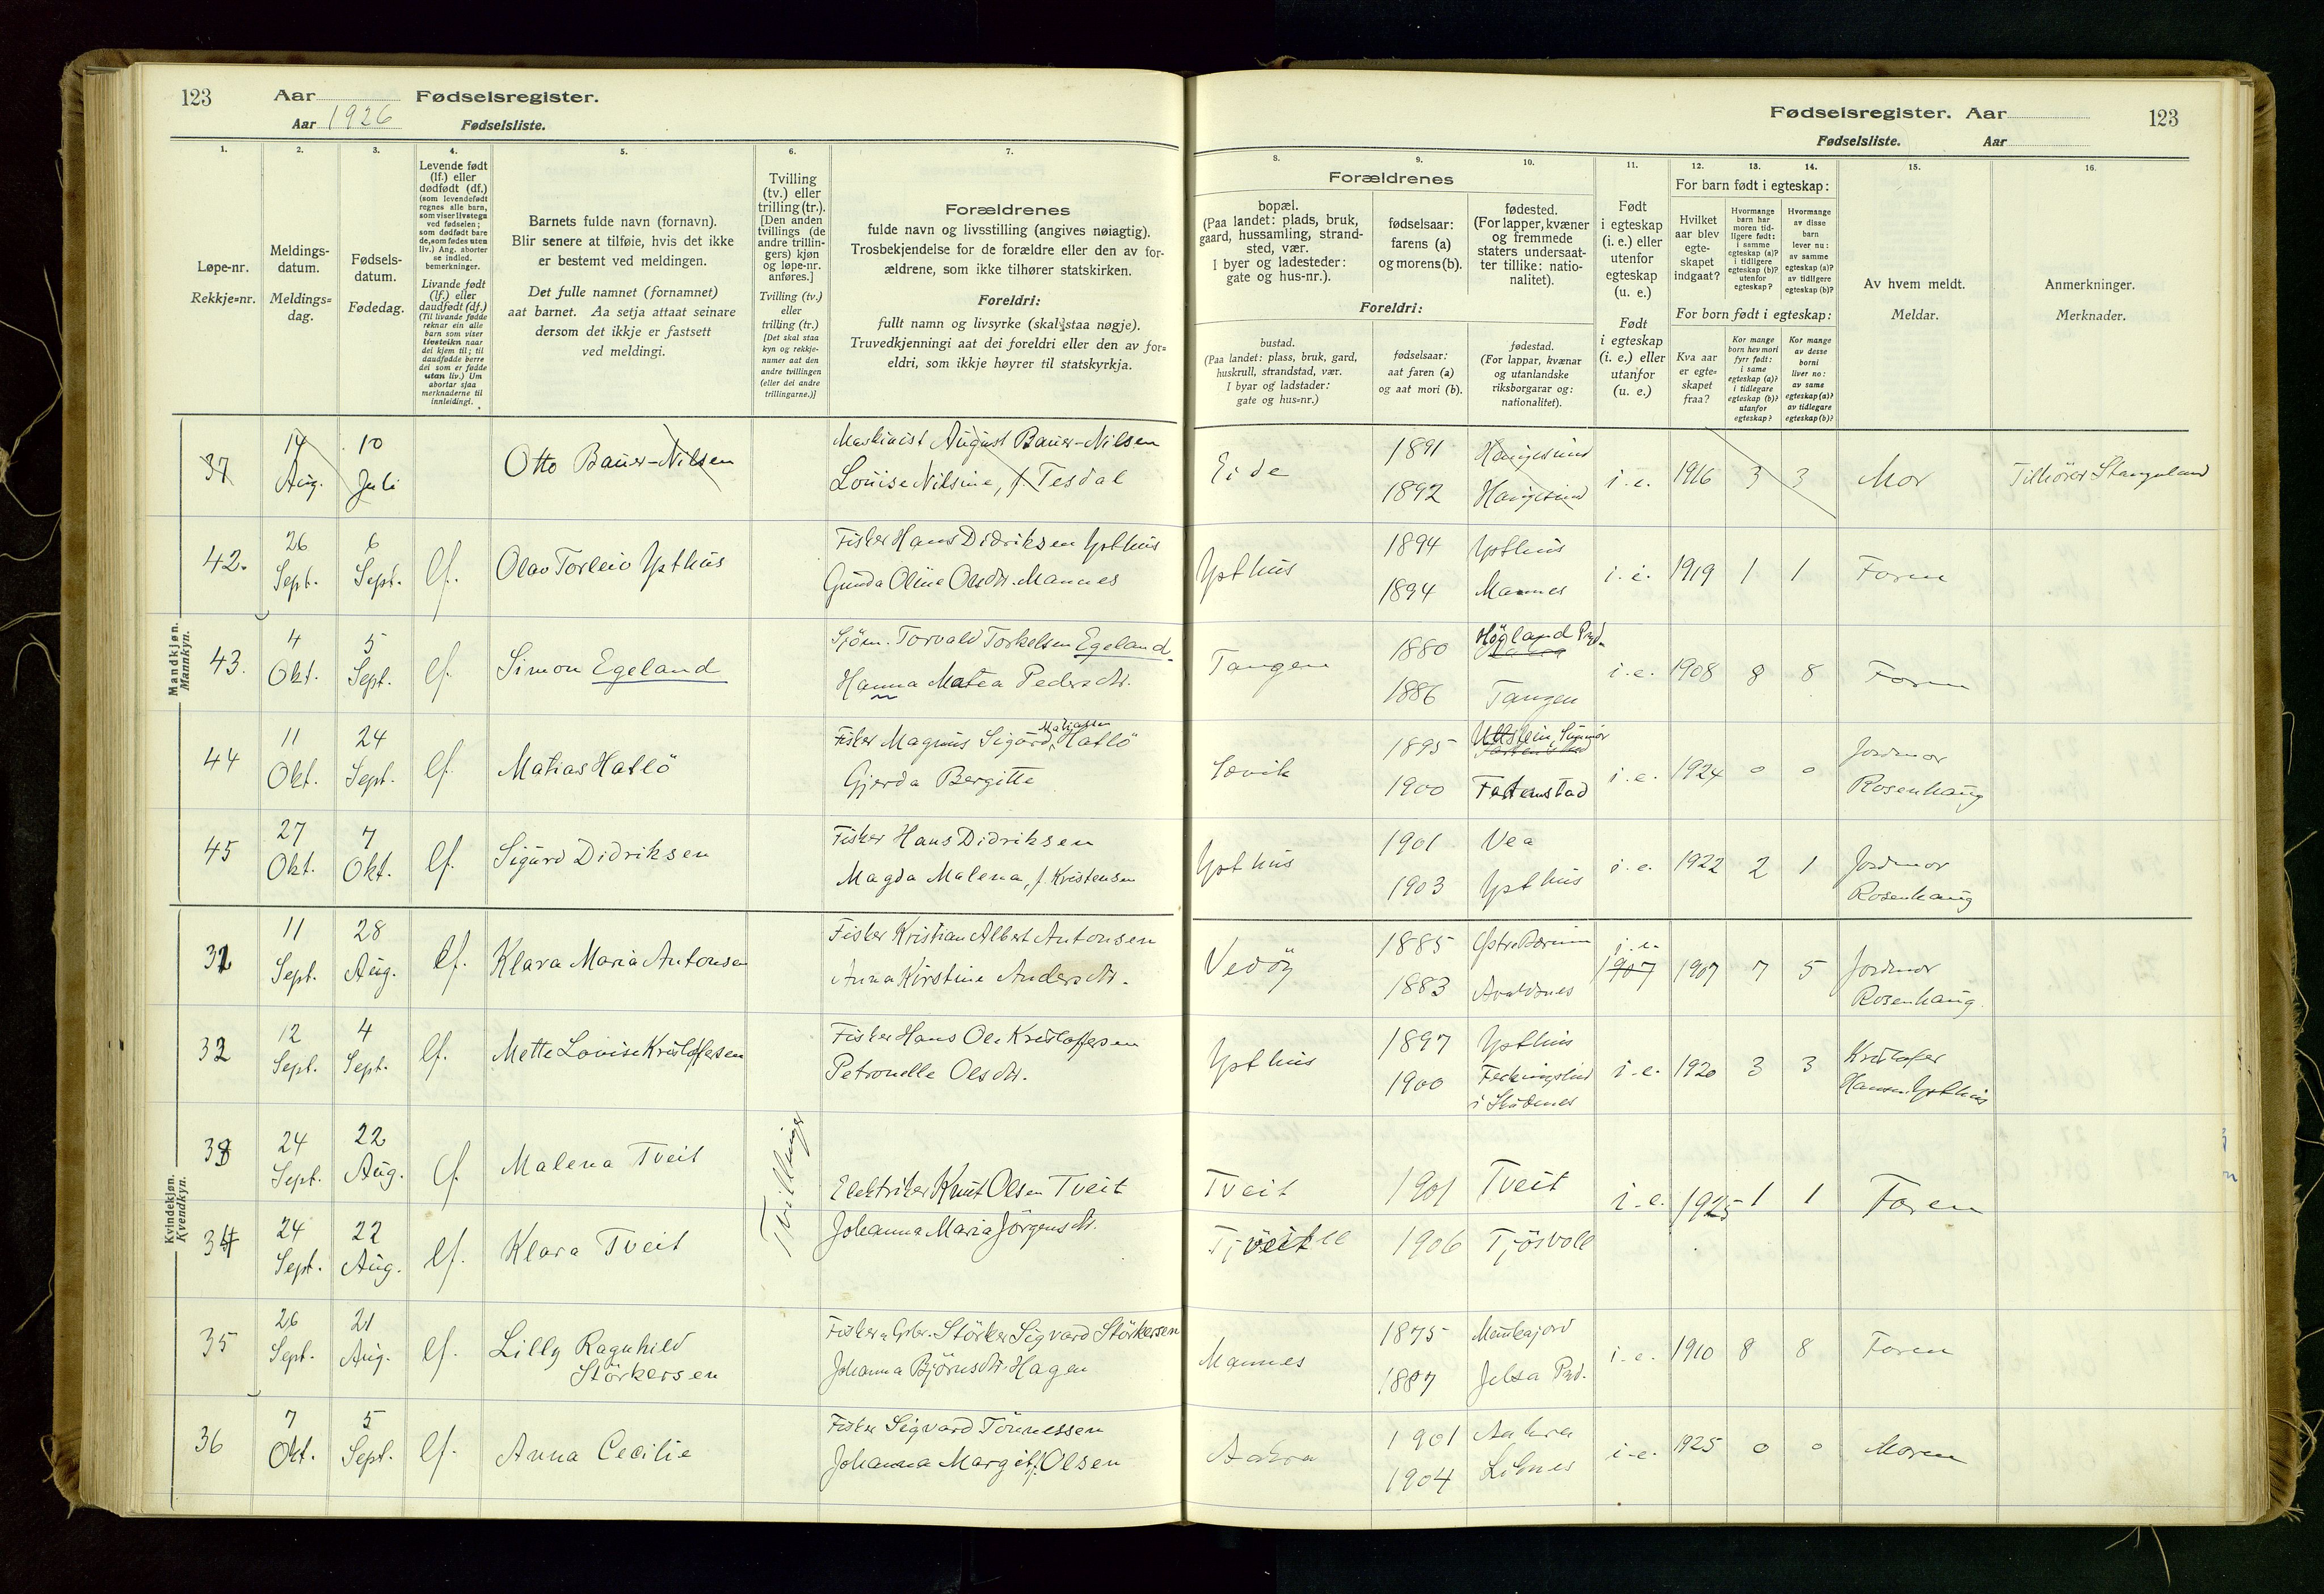 123 Aar Fødselsregister.
Aar 1926 Fødselsliste.
1. 2. 3. 4. 5. 6. 7.
Løpe-nr.
Rekkje=nr.
Meldings-
datum.
Meldings=
dag.
Fødsels-
datum.
Fødedag.
Levende født
(lf.) eller
dødfødt (df.)
(som levendefødt
regnes alle barn,
som viser livstegn
ved fødselen;
som dødfødt bare
de, som fødes uten
liv.) Ang. aborter
se indled.
bemerkninger.
Livande født
(lf.) eller
daudfødt (df.)
(Til livande fødde
reknar ein alle
barn som viser
livsteikn naar
dei kjem til; til
daudfødde berre
dei som er fødde
utan liv.) Um
abortar sjaa
merknaderne til
innleidingi.
Barnets fulde navn (fornavn).
Blir senere at tilføie, hvis det ikke
er bestemt ved meldingen.
Det fulle namnet (fornamnet)
aat barnet. Aa setja attaat seinare
dersom det ikkje er fastsett
ved meldingi.
Tvilling
(tv.) eller
trilling (tr.).
[Den anden
tvillings (de
andre trillin-
gers) kjøn
og løpe-nr.
anføres.]
Tvilling (tv.)
eller
trilling (tr.)
[Det skal staa
kyn og rekkje-
numer aat den
andre tvillingen
(eller dei andre
trillingarne.)]
Forældrenes
fulde navn og livsstilling (angives nøiagtig).
Trosbekjendelse for de forældre eller den av for-
ældrene, som ikke tilhører statskirken.
Foreldri:
fullt namn og livsyrke (skal staa nøgje).
Truvedkjenningi aat dei foreldri eller den av for=
eldri, som ikkje høyrer til statskyrkja.
Mandkjøn.
Mannkyn.
37 14 Aug. 10 Juli Otto Bauer-Nilsen
Maskinist August Bauer-Nilsen
Louise Nilsine, f. Tesdal
42. 26 Sept. 6 Sept. lf. Olav Torleiv Ypthus
Fisker Hans Didriksen Ypthus
Gunda Oline Olsdtr. Mannes
43. 4 Okt. 5 Sept. lf. Simon Egeland
Sjöm. Torvald Torkelsen Egeland.
Hanna Matea Pedersdtr.
44 11 Okt. 24 Sept. lf. Matias Hatlö
Matiassen
Fisker Magnus Sigurd Hatlö
Gjerda Bergitte
45 27 Okt. 7 Okt. lf. Sigurd Didriksen
Fisker Hans Didriksen
Magda Malena, f. Kristensen
Kvindekjøn.
Kvendkyn.
31 11 Sept. 28 Aug. lf. Klara Maria Antonsen
Fisker Kristian Albert Antonsen
Anna Kirstine Andersdtr.
32 12 Sept. 4 Sept. lf. Mette Lovise Kristoffersen
Fisker Hans Ole Kristoffersen
Petronelle Olsdtr.
33 24 Sept. 22 Aug. lf. Malena Tveit
Tvillinger
Elektriker Knut Olsen Tveit
Johanna Maria Jörgensdtr.
34 24 Sept. 22 Aug. lf. Klara Tveit
35 26 Sept. 21 Aug. lf. Lilly Ragnhild
Störkersen
Fisker & Gbr. Störker Sigvard Störkersen
Johanna Björnsdtr. Hagen
36 7 Okt. 5 Sept. lf. Anna Cecilie
Fisker Sigvard Tönnessen
Johanna Margit f. Olsen
Fødselsregister. Aar 123
Fødselsliste. Aar
8. 9. 10. 11. 12. 13. 14. 15. 16.
Forældrenes
bopæl.
(Paa landet: plads, bruk,
gaard, hussamling, strand-
sted, vær.
I byer og ladesteder:
gate og hus-nr.).
fødselsaar:
farens (a)
og morens (b).
fødested.
(For lapper, kvæner
og fremmede
staters undersaat-
ter tillike: natio-
nalitet).
Foreldri:
bustad.
(Paa landet: plass, bruk, gard,
huskrull, strandstad, vær.
I byar og ladstader:
gate og hus=nr.)
fødselsaar:
aat faren (a)
og aat mori (b).
fødestad.
(For lappar, kvænar
og utanlandske
riksborgarar og:
nationalitet).
Født
i egteskap
(i. e.) eller
utenfor
egteskap
(u. e.)
Født
i egteskap
(i. e.) eller
utanfor
(u. e.)
For barn født i egteskap:
Hvilket
aar blev
egte-
skapet
indgaat?
Hvormange
barn har
moren tid-
ligere født:
i samme
egteskap (a)?
i tidligere
egteskap (b)?
utenfor
egteskap?
Hvormange
av disse
barn
lever nu:
av samme
egteskap (a)?
av tidligere
egteskap (b)?
For born født i egteskap:
Kva aar
er egte-
skapet
fraa?
Kor mange
born hev mori
fyrr født:
i same
egteskap (a)?
i tidlegare
egteskap (b)?
utanfor
egteskap?
Kor mange
av desse
borni
liver no:
av same
egteskap (a)?
av tidlegare
egteskap (b)?
Av hvem meldt.
Meldar.
Anmerkninger.
Merknader.
Eide 1891 Haugesund i.e. 1916 3 3 Mor Tilhörer Stangeland
1892 Haugesund
Ypthus 1894 Ypthus i.e. 1919 1 1 Faren
1894 Mannes
Tangen 1880 Högland Prd. i.e. 1908 8 8 Faren
1886 Tangen
Sævik 1895 i.e. 1924 0 0 Jordmor
1900 Fartenstad Rosenhaug
Ypthus 1901 Vea i.e. 1922 2 1 Jordmor
1903 Ypthus Rosenhaug
Vedöy 1885 i.e. 1907 1907 7 5 Jordmor
1883 Avaldsnes Rosenhaug.
Ypthus 1897 Ypthus i.e. 1920 3 3 Kristofer
1900 i Skudenes Hansen Ypthus
Tveit 1901 Tveit i.e. 1925 1 1 Faren
1906 Tjösvoll
Mannes 1875 i.e. 1910 8 8 Faren
1887 Jelsa Prd.
Aakra 1901 Aakra i.e. 1925 0 0 Moren
1904 Liknes